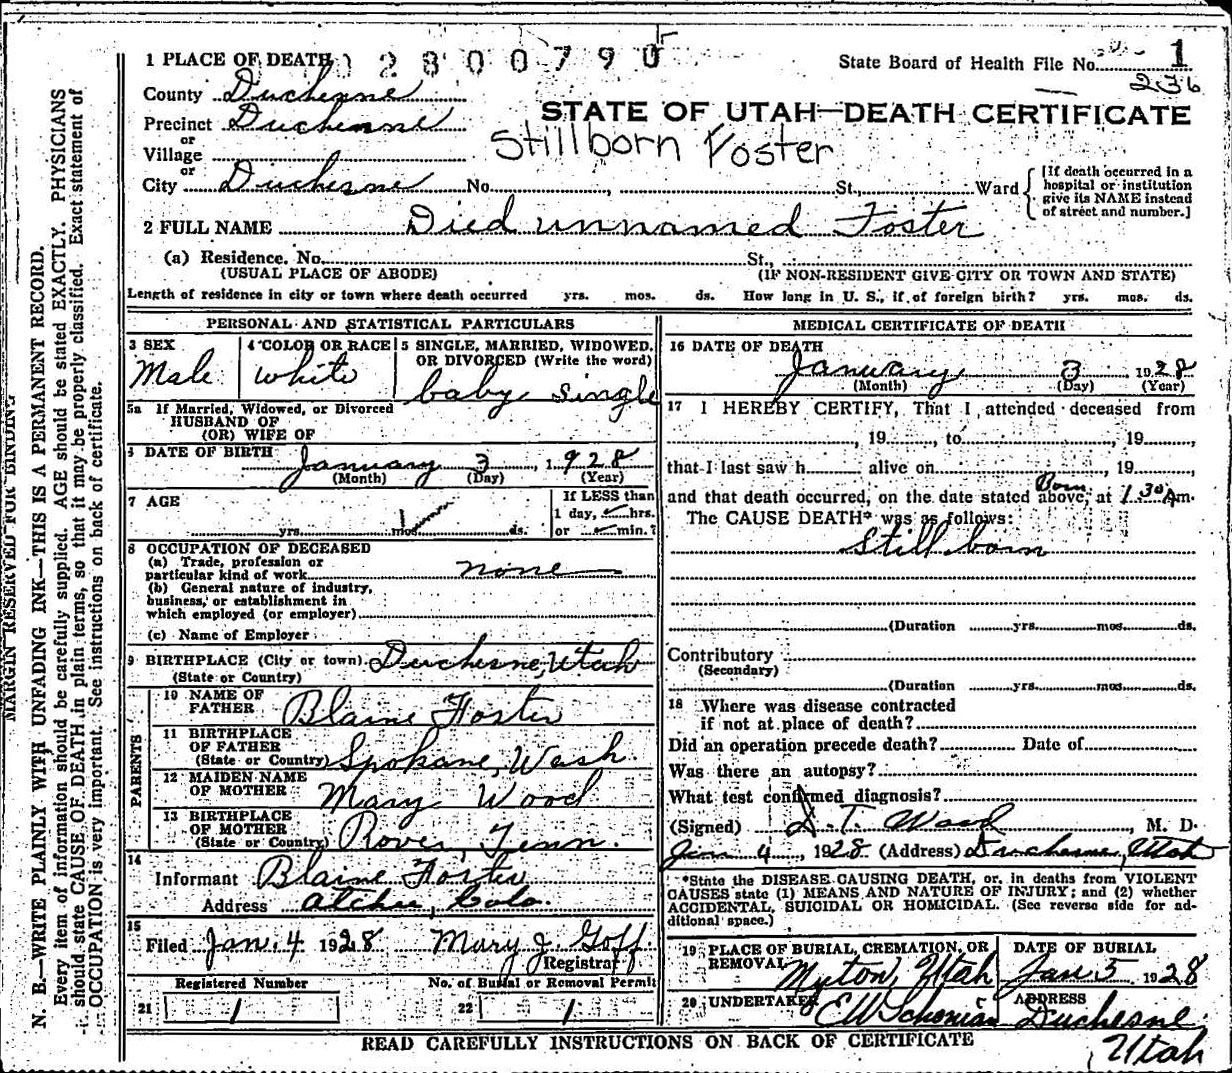 1 PLACE OF DEATH 0 2 8 0 0 7 9 0
State Board of Health File No. 1
236
County Duchesne
STATE OF UTAH—DEATH CERTIFICATE
Precinct Duchesne
Stillborn Foster
or
Village
or
City Duchesne No. St., Ward
[If death occurred in a
hospital or institution
give its NAME instead
of street and number.]
2 FULL NAME Died unnamed Foster
(a) Residence. No. St.,
(USUAL PLACE OF ABODE) (IF NON-RESIDENT GIVE CITY OR TOWN AND STATE)
Length of residence in city or town where death occurred yrs. mos. ds. How long in U. S., if of foreign birth? yrs. mos. ds.
PERSONAL AND STATISTICAL PARTICULARS
3 SEX
Male
4 COLOR OR RACE
white
5 SINGLE, MARRIED, WIDOWED,
OR DIVORCED (Write the word)
baby single
5a If Married, Widowed, or Divorced
HUSBAND OF
(OR) WIFE OF
6 DATE OF BIRTH
January 3, 1928
(Month) (Day) (Year)
7 AGE
yrs. mos. ds.
If LESS than
1 day, hrs.
or min.?
8 OCCUPATION OF DECEASED
(a) Trade, profession or
particular kind of work none
(b) General nature of industry,
business, or establishment in
which employed (or employer)
(c) Name of Employer
9 BIRTHPLACE (City or town) Duchesne, Utah
(State or Country)
PARENTS
10 NAME OF
FATHER Blaine Foster
11 BIRTHPLACE
OF FATHER
(State or Country) Spokane, Wash.
12 MAIDEN NAME
OF MOTHER Mary Wood
13 BIRTHPLACE
OF MOTHER
(State or Country) Rover, Tenn.
14
Informant Blaine Foster
Address Atchee, Colo.
15
Filed Jan. 4 1928 Mary J. Goff
Registrar
Registered Number No. of Burial or Removal Permit
21 1 22 1
MEDICAL CERTIFICATE OF DEATH
16 DATE OF DEATH
January 3 1928
(Month) (Day) (Year)
17 I HEREBY CERTIFY, That I attended deceased from
, 19 , to , 19 ,
that I last saw h alive on , 19
Born
and that death occurred, on the date stated above, at 1.30 A m.
The CAUSE DEATH* was as follows:
Still born
(Duration yrs. mos. ds.
Contributory
(Secondary)
(Duration yrs. mos. ds.
18 Where was disease contracted
if not at place of death?
Did an operation precede death? Date of
Was there an autopsy?
What test confirmed diagnosis?
(Signed) D. T. Wood, M. D.
Jan 4, 1928 (Address) Duchesne, Utah
*State the DISEASE CAUSING DEATH, or, in deaths from VIOLENT
CAUSES state (1) MEANS AND NATURE OF INJURY; and (2) whether
ACCIDENTAL, SUICIDAL OR HOMICIDAL. (See reverse side for ad-
ditional space.)
19 PLACE OF BURIAL, CREMATION, OR
REMOVAL Myton, Utah
DATE OF BURIAL
Jan 5 1928
20 UNDERTAKER
ADDRESS
Duchesne,
Utah
READ CAREFULLY INSTRUCTIONS ON BACK OF CERTIFICATE
MARGIN RESERVED FOR BINDING
N. B.—WRITE PLAINLY WITH UNFADING INK—THIS IS A PERMANENT RECORD.
Every item of information should be carefully supplied. AGE should be stated EXACTLY. PHYSICIANS
should state CAUSE OF DEATH in plain terms, so that it may be properly classified. Exact statement of
OCCUPATION is very important. See instructions on back of certificate.